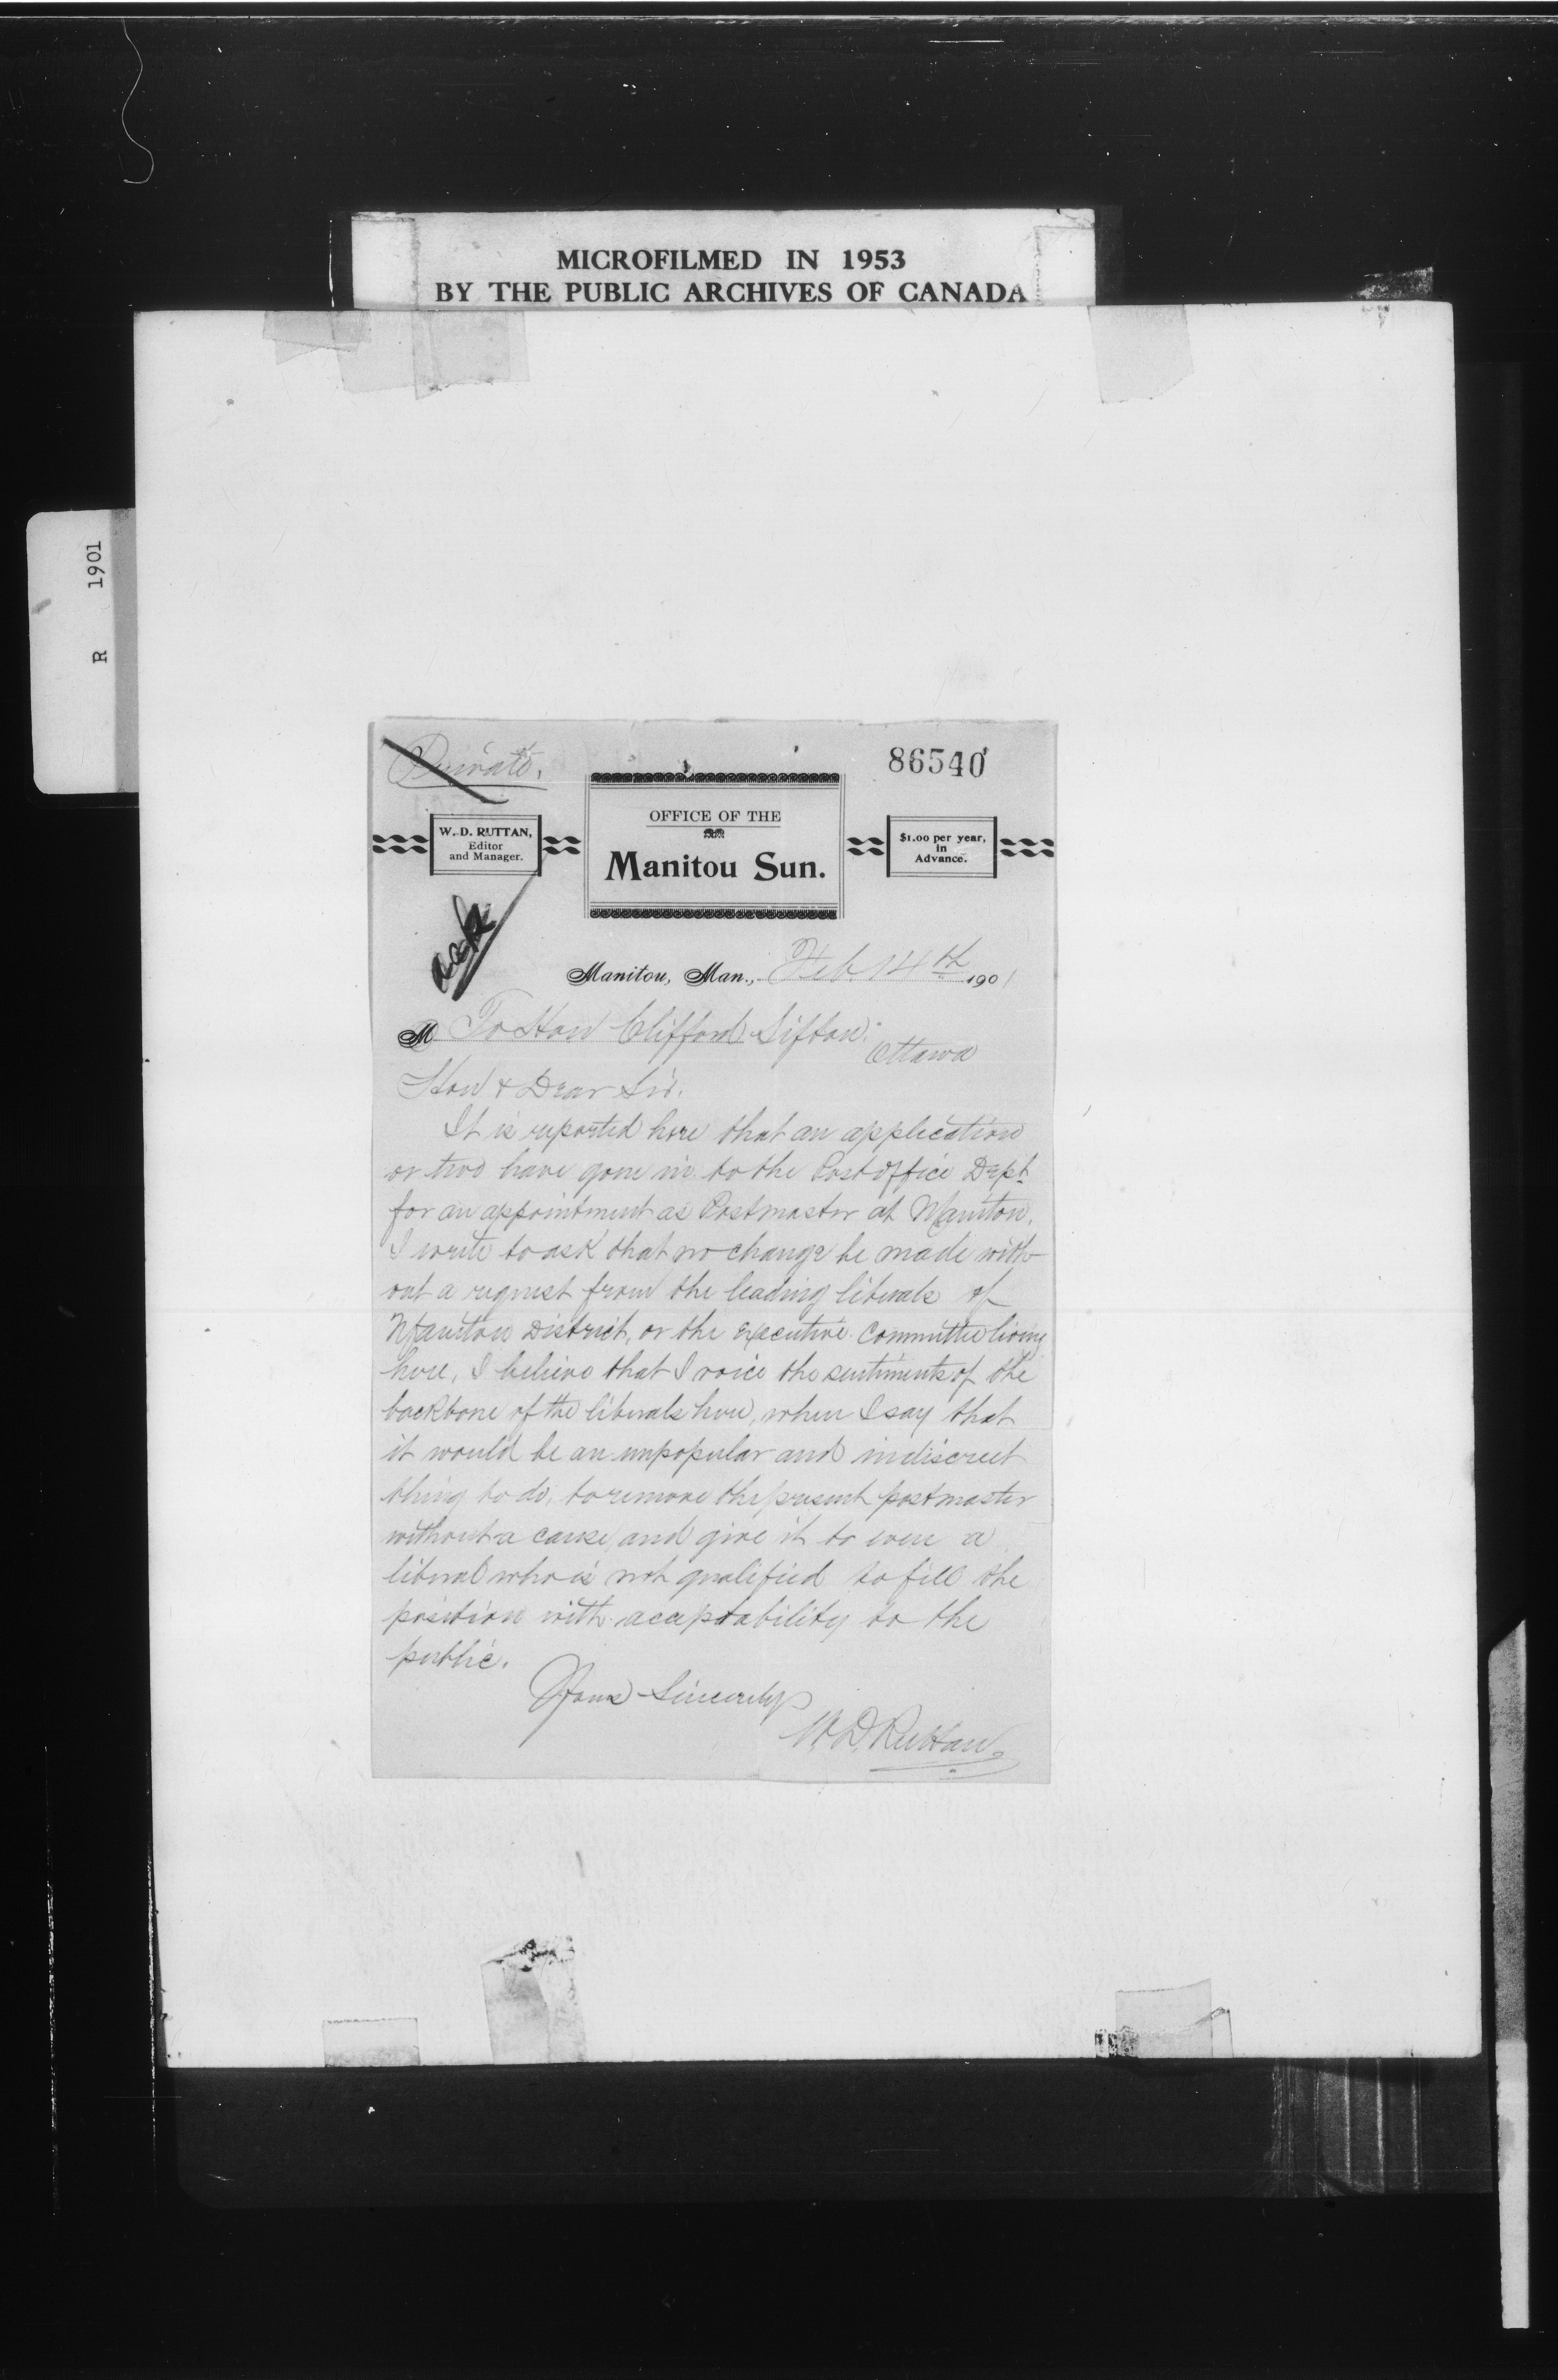 MICROFILMED IN 1953
BY THE PUBLIC ARCHIVES OF CANADA
R 1901
Private.
86540
W. D. RUTTAN,
Editor
and Manager.
OFFICE OF THE
Manitou Sun.
$1.00 per year,
in
Advance.
Manitou, Man., Feb. 14th 1901
M To Hon Clifford Sifton.
Ottawa
Hon & Dear Sir.
It is reported here that an application
or two have gone in to the Post Office Dept.
for an appointment as Postmaster at Manitou.
I write to ask that no change be made with-
out a request from the leading liberals of
Manitou District, or the Executive Committee living
here. I believe that I voice the sentiments of the
backbone of the liberals here, when I say that
it would be an unpopular and indiscreet
thing to do, to remove the present postmaster
without a cause, and give it to even a
liberal who is not qualified to fill the
position with acceptability to the
public.
Yours Sincerely
W. D. Ruttan.